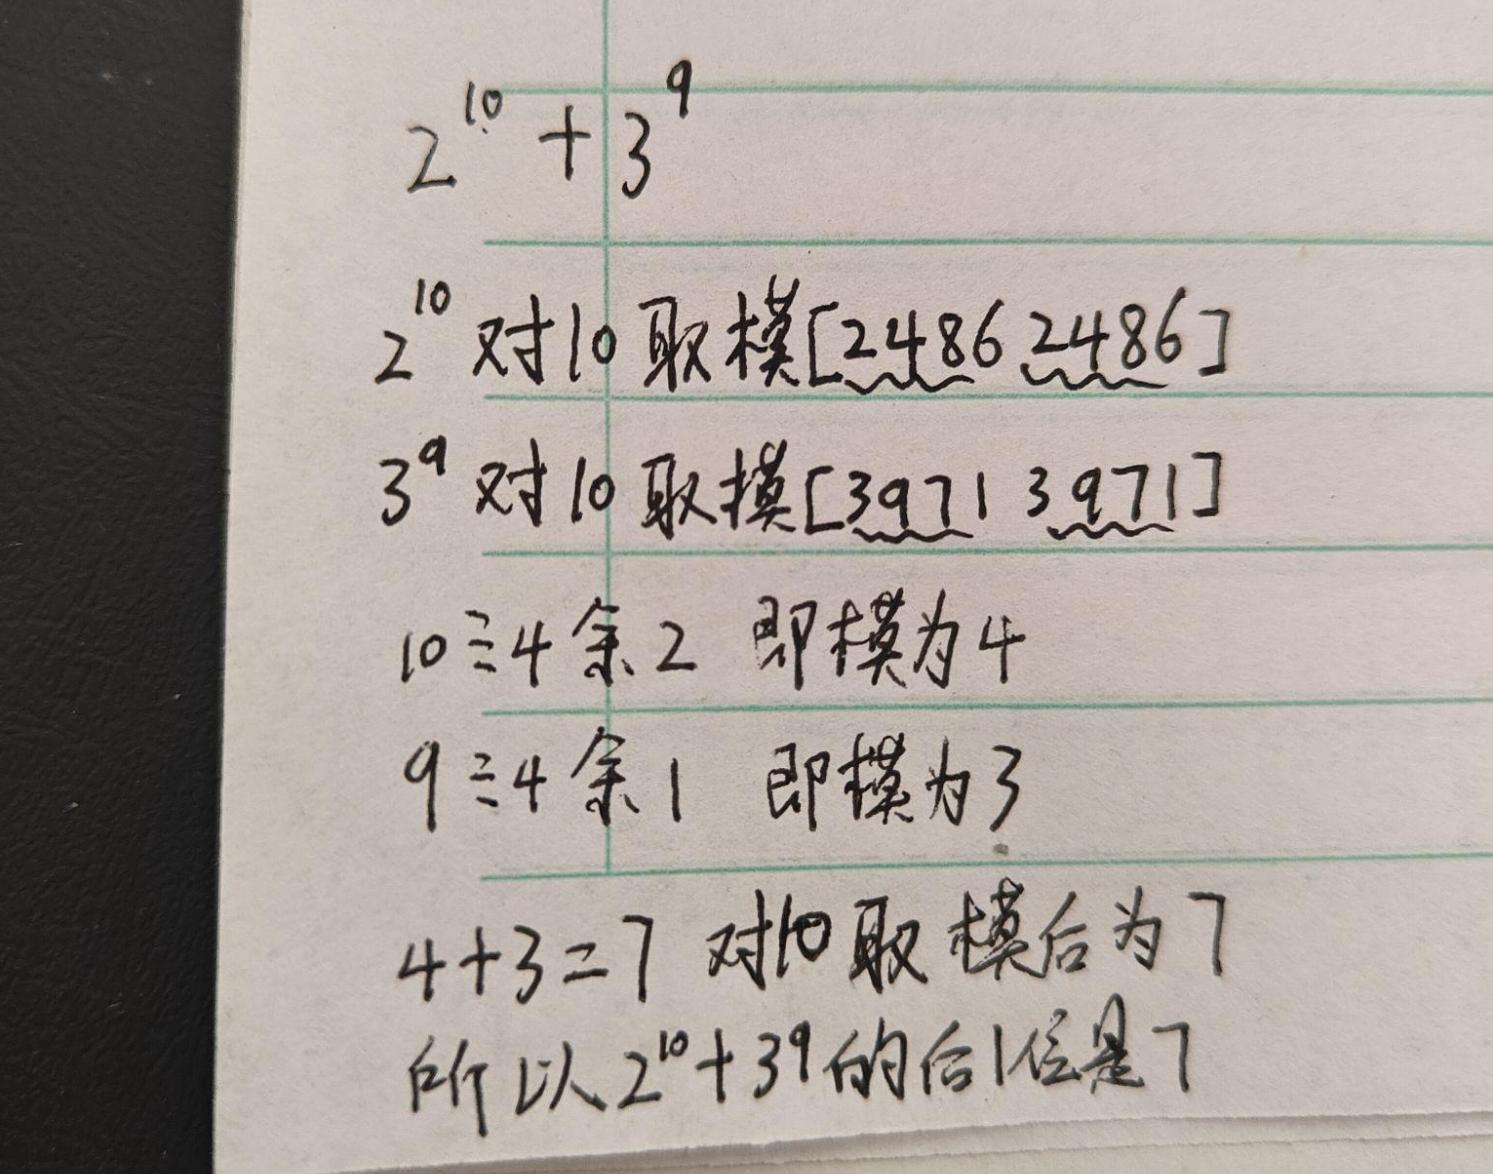 2¹⁰ + 3⁹
2¹⁰ 对10取模[2486 2486]
3⁹ 对10取模[3971 3971]
10÷4余2 即模为4
9÷4余1 即模为3
4+3=7 对10取模后为7
所以2¹⁰+3⁹的后1位是7